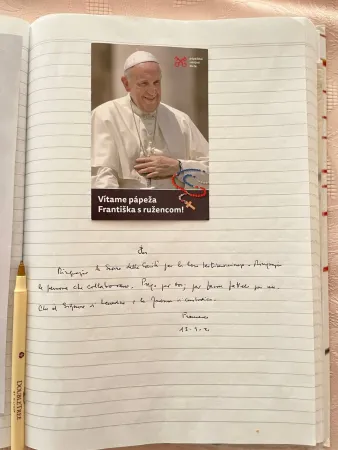 Vítame pápeža
Františka s ružencom!
Ringrazio le Suore della Carità per la loro testimonianza. Ringrazio
le persone che collaborano. Prego per voi; per favore fatelo per me.
Che il Signore vi benedica e la Madonna vi custodisca.
Francesco
13-9-21
DOUBLETREE